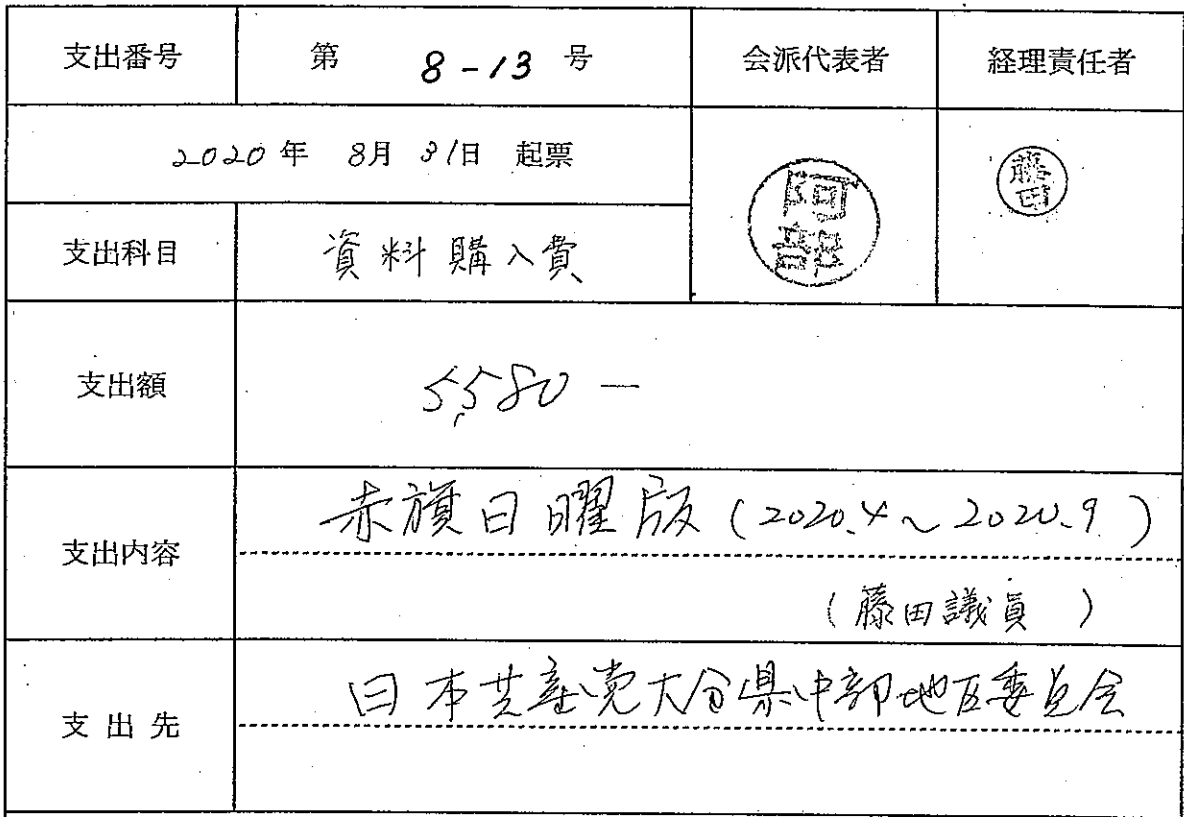 支出番号 第 8-13 号 会派代表者 経理責任者
2020年 8月 31日 起票
阿部
藤田
支出科目 資料購入費
支出額 5,580 —
支出内容 赤旗日曜版(2020.4~2020.9)
(藤田議員 )
支出先 日本共産党大分県中部地区委員会